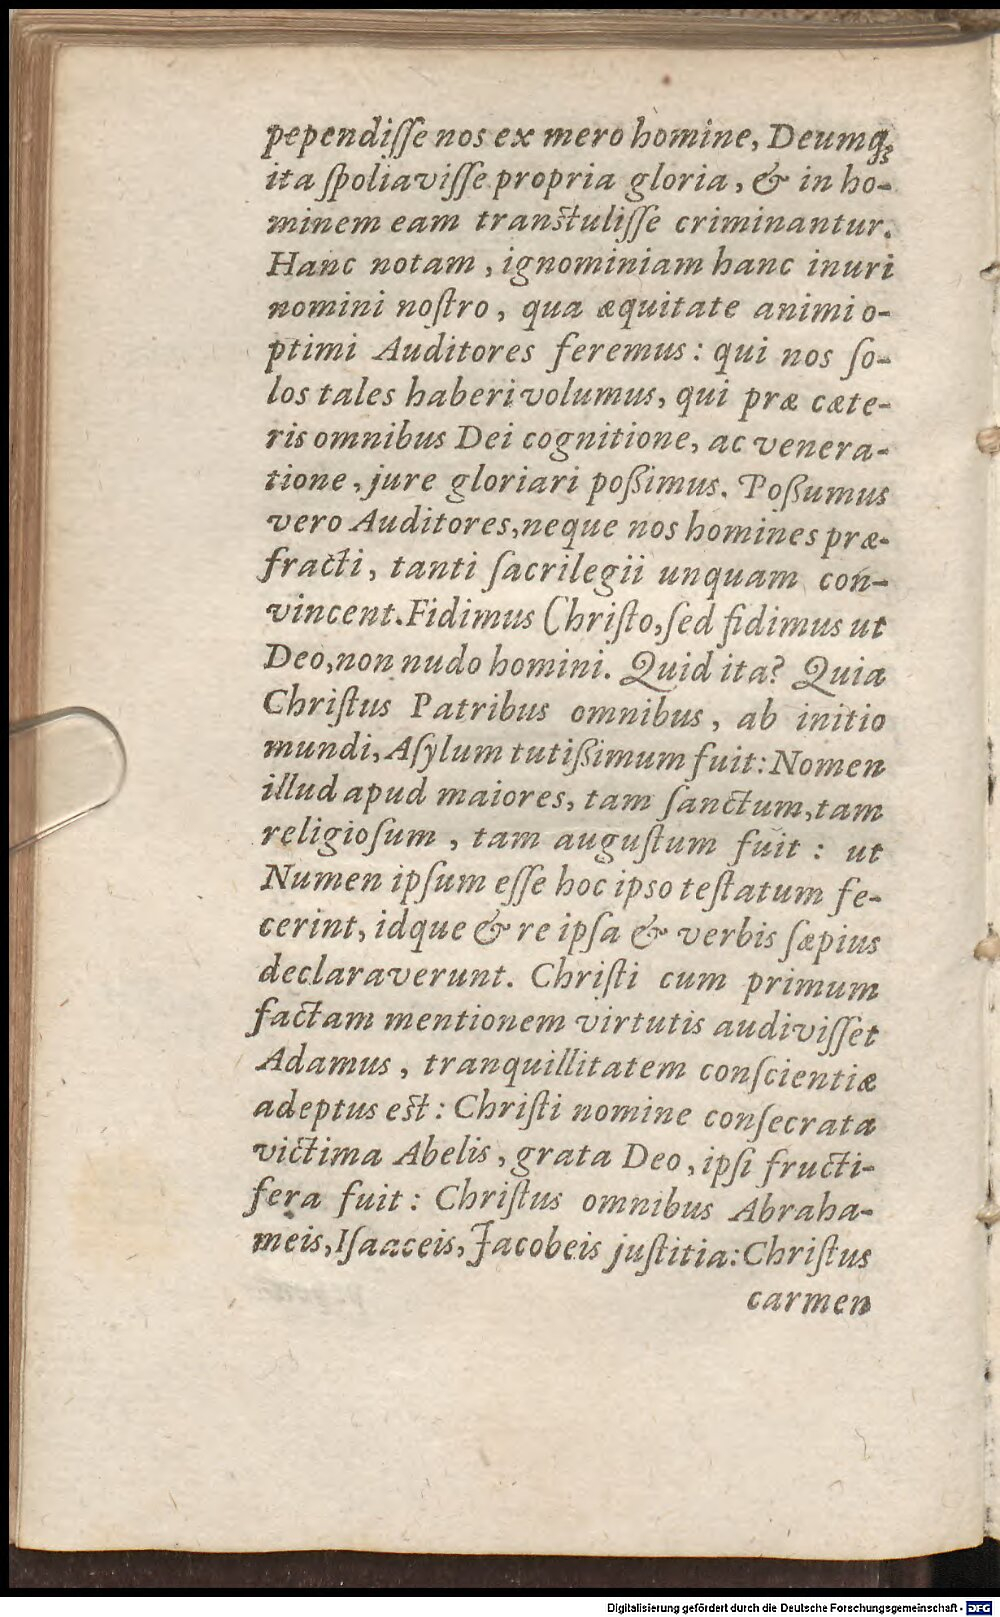 pependiſſe nos ex mero homine, Deumq;
ita ſpoliaviſſe propria gloria, & in ho-
minem eam tranſtuliſſe criminantur.
Hanc notam, ignominiam hanc inuri
nomini noſtro, qua æquitate animi o-
ptimi Auditores feremus: qui nos ſo-
los tales haberi volumus, qui præ cæte-
ris omnibus Dei cognitione, ac venera-
tione, jure gloriari poßimus. Poßumus
vero Auditores, neque nos homines præ-
fracti, tanti ſacrilegii unquam con-
vincent. Fidimus Chriſto, ſed fidimus ut
Deo, non nudo homini. Quid ita? Quia
Chriſtus Patribus omnibus, ab initio
mundi, Aſylum tutißimum fuit: Nomen
illud apud maiores, tam ſanctum, tam
religioſum, tam auguſtum fuit: ut
Numen ipſum eſſe hoc ipso teſtatum fe-
cerint, idque & re ipſa & verbis ſæpius
declaraverunt. Chriſti cum primum
factam mentionem virtutis audiviſſet
Adamus, tranquillitatem conſcientiæ
adeptus eſt: Chriſti nomine conſecrata
victima Abelis, grata Deo, ipſi fructi-
fera fuit: Chriſtus omnibus Abraha-
meis, Iſaaceis, Jacobeis juſtitia: Chriſtus
carmen
Digitalisierung gefördert durch die Deutsche Forschungsgemeinschaft - DFG